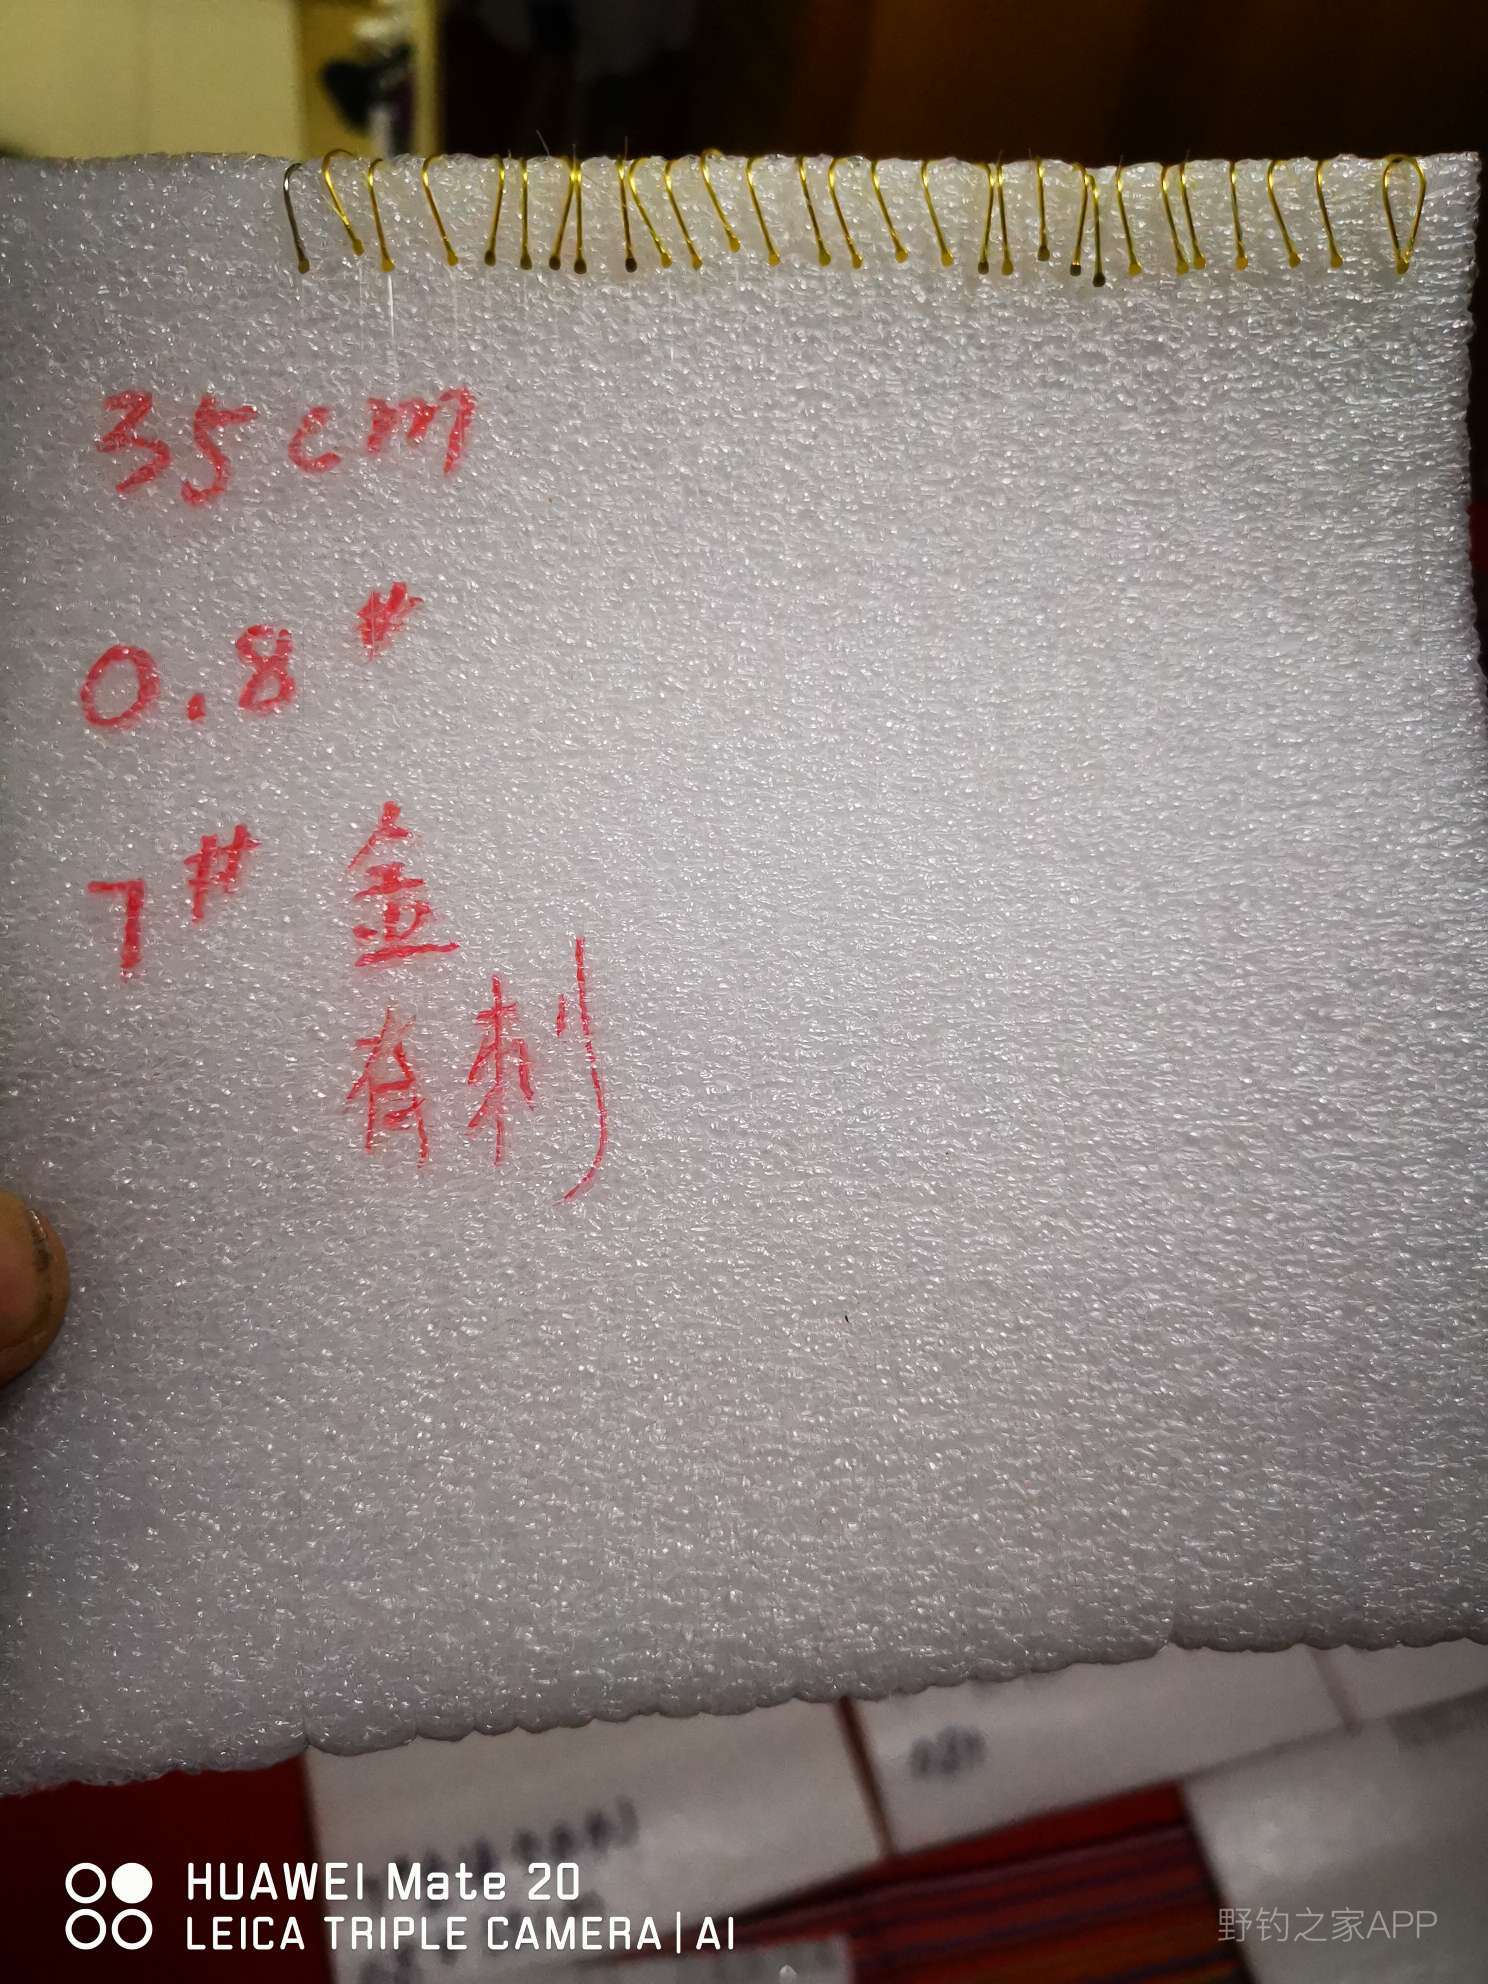 35cm
0.8#
7# 金
有刺
HUAWEI Mate 20
LEICA TRIPLE CAMERA | AI
野钓之家APP